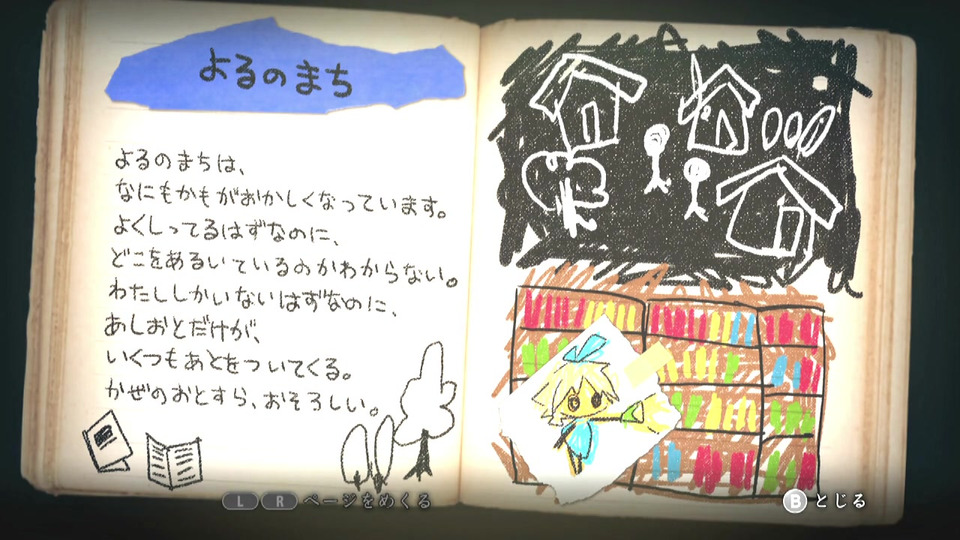 よるのまち
よるのまちは、
なにもかもがおかしくなっています。
よくしってるはずなのに、
どこをあるいているのかわからない。
わたししかいないはずなのに、
あしおとだけが、
いくつもあとをついてくる。
かぜのおとすら、おそろしい。
L R ページをめくる
B とじる